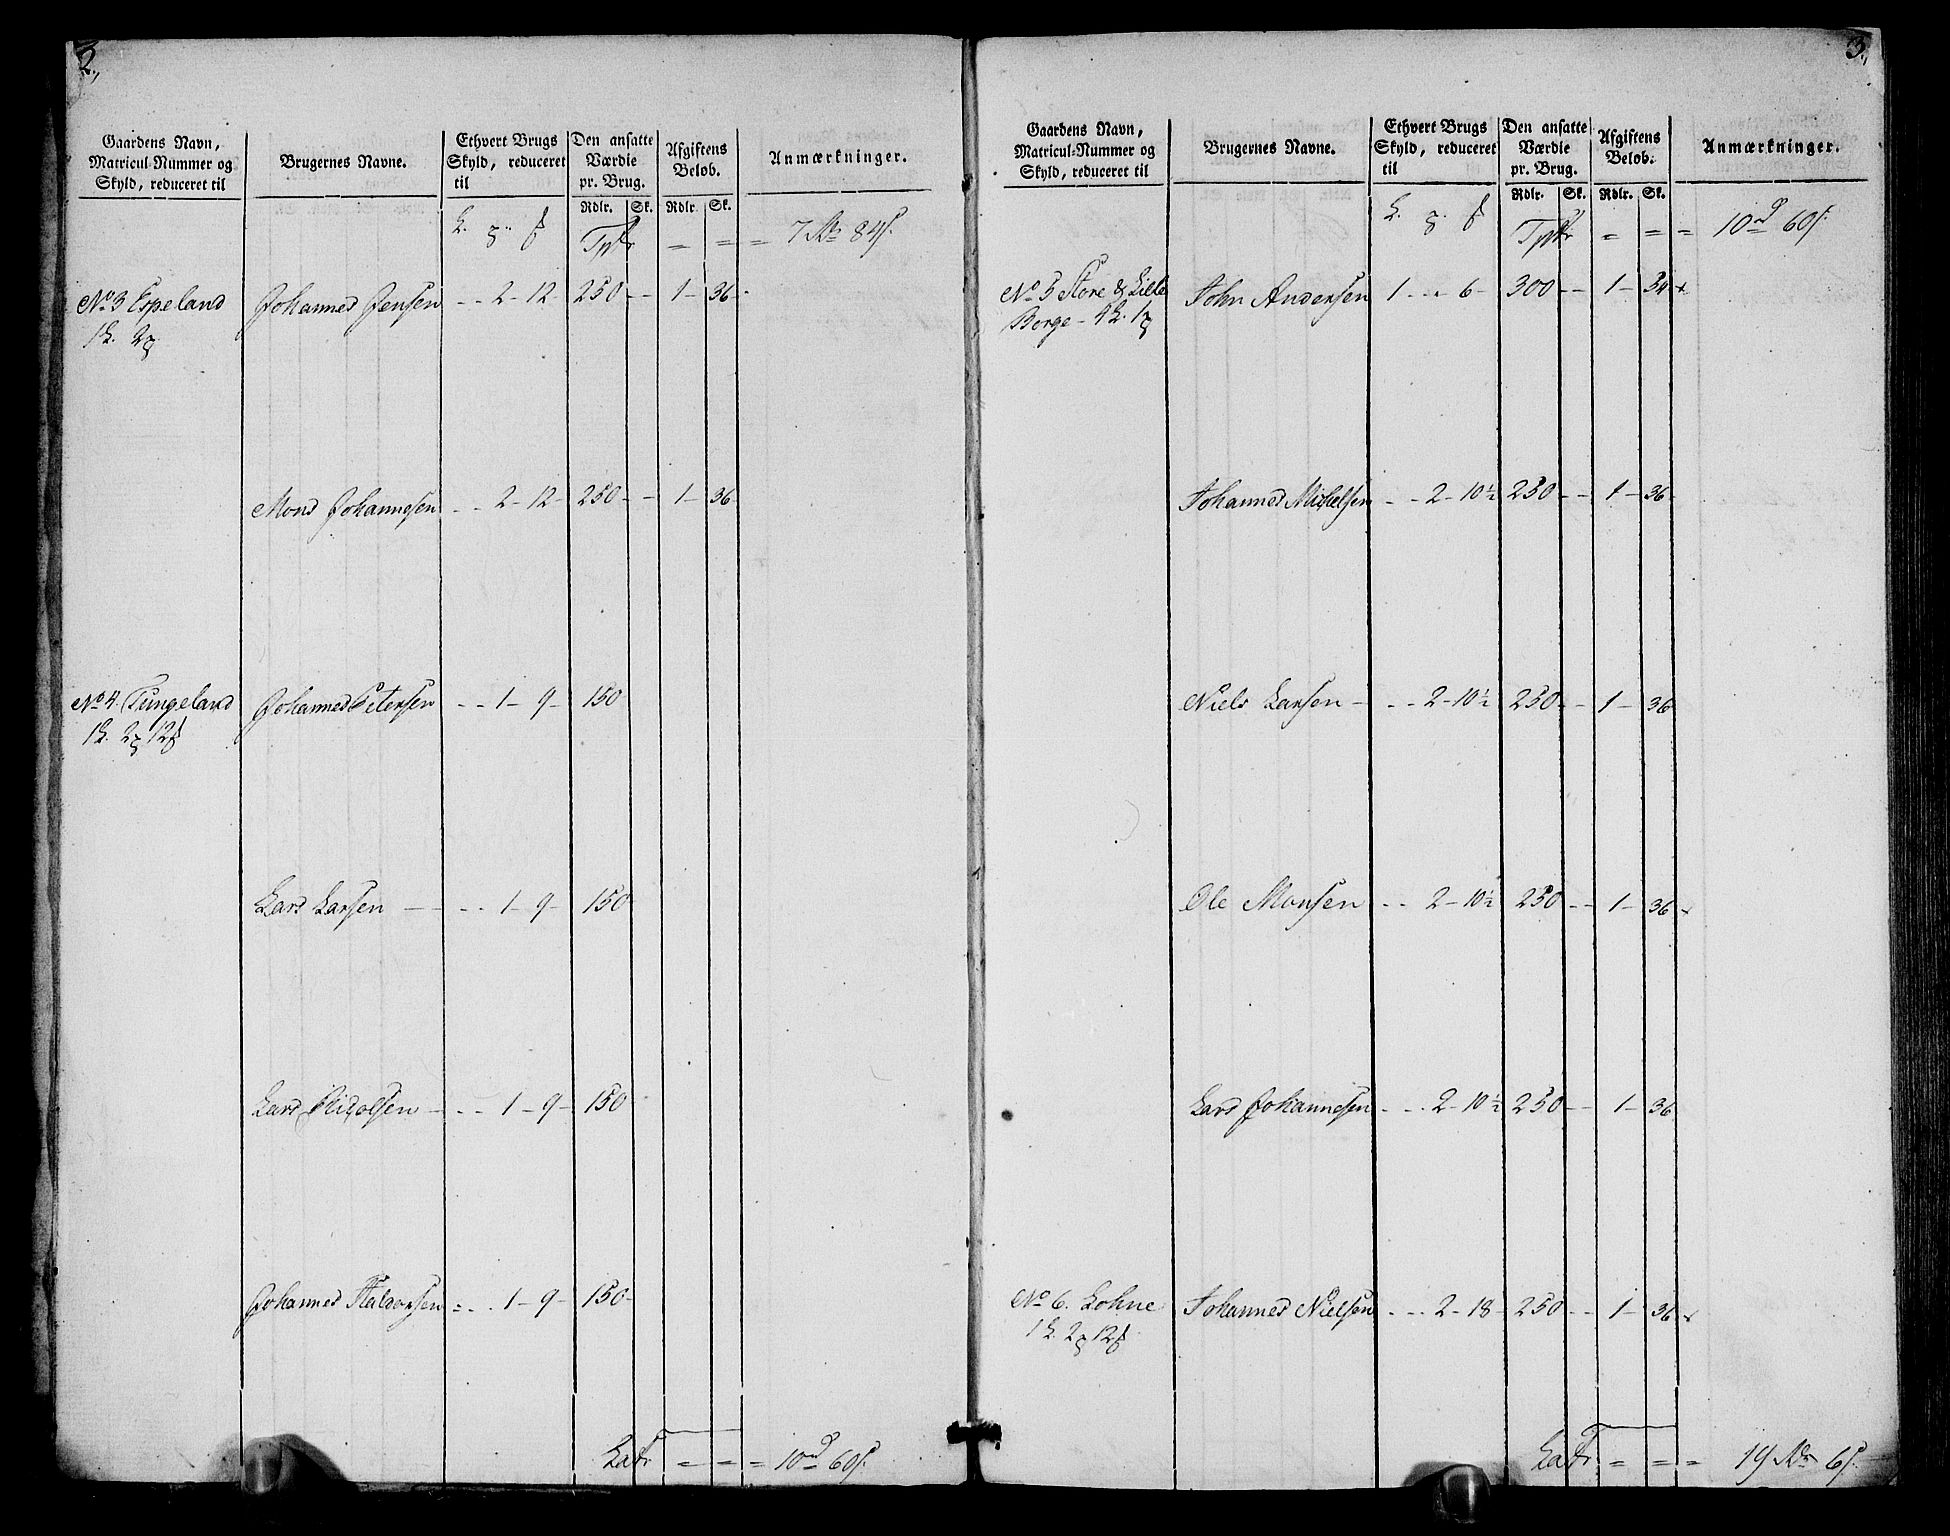 2.,
Gaardens Navn, Matricul-Nummer og Skyld, reduceret til
Brugernes Navne.
Ethvert Brugs Skyld, reduceret til
Den ansatte Værdie pr. Brug.
Afgiftens Beløb.
Anmærkninger.
Rdlr. Sk. Rdlr. Sk.
Tptr = = = 7 Rdr 84 s.
No 3 Espeland Johannes Jensen - - 2 - 12 - 250 - - 1 - 36 -
1 L. 2
Mons Johannesen - - 2 - 12 - 250 - - 1 - 36
No 4. Tungeland Johannes Petersen - - 1 - 9 - 150
1 L. 2 12
Lars Larsen - - - 1 - 9 - 150
Lars - - - 1 - 9 - 150
Johannes Haldorsen - - - 1 - 9 - 150 -
Latr = = = 10 rd 60 s.
3.,
Gaardens Navn, Matricul-Nummer og Skyld, reduceret til
Brugernes Navne.
Ethvert Brugs Skyld, reduceret til
Den ansatte Værdie pr. Brug.
Afgiftens Beløb.
Anmærkninger.
Rdlr. Sk. Rdlr. Sk.
Tptr = = = 10 rd 60 s.
No 5 Store & Lille John Andersen 1 - - 6 - 300 - - 1 - 54
Borge - 4 L. 1
Johannes Michelsen - - 2 - 10 ½ 250 - - 1 - 36
Niels Larsen - - - 2 - 10 ½ 250 - - 1 - 36
Ole Monsen - - 2 - 10 ½ 250 - - 1 - 36
Lars Johannesen - - - 2 - 10 ½ 250 - - 1 - 36
No 6. Lohne Johannes Nielsen - - - 2 - 18 - 250 - - 1 - 36
1 L. 2 12
Latr = = = 19 Rdr 6 s.